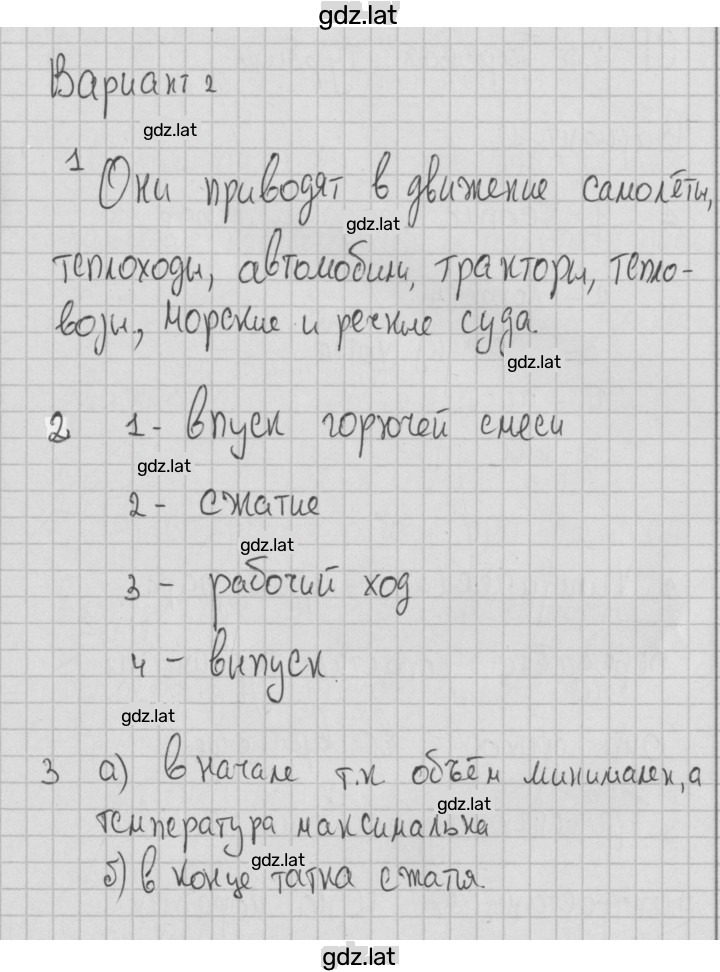 gdz.lat
Вариант 2
gdz.lat
1 Они приводят в движение самолёты,
gdz.lat
теплоходы, автомобили, тракторы, тепло-
возы, морские и речные суда.
gdz.lat
2 1- впуск горючей смеси
gdz.lat
2- сжатие
gdz.lat
3 - рабочий ход
4 - выпуск.
gdz.lat
3 а) в начале т.к объём минимален, а
gdz.lat
температура максимальна
gdz.lat
б) в конце татка сжатия.
gdz.lat